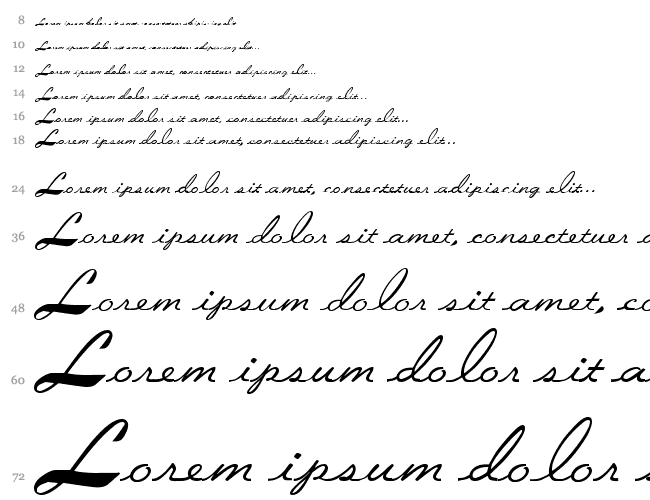 8 Lorem ipsum dolor sit amet, consectetuer adipiscing elit...
10 Lorem ipsum dolor sit amet, consectetuer adipiscing elit...
12 Lorem ipsum dolor sit amet, consectetuer adipiscing elit...
14 Lorem ipsum dolor sit amet, consectetuer adipiscing elit...
16 Lorem ipsum dolor sit amet, consectetuer adipiscing elit...
18 Lorem ipsum dolor sit amet, consectetuer adipiscing elit...
24 Lorem ipsum dolor sit amet, consectetuer adipiscing elit...
36 Lorem ipsum dolor sit amet, consectetuer a
48 Lorem ipsum dolor sit amet, co
60 Lorem ipsum dolor sit a
72 Lorem ipsum dolor s